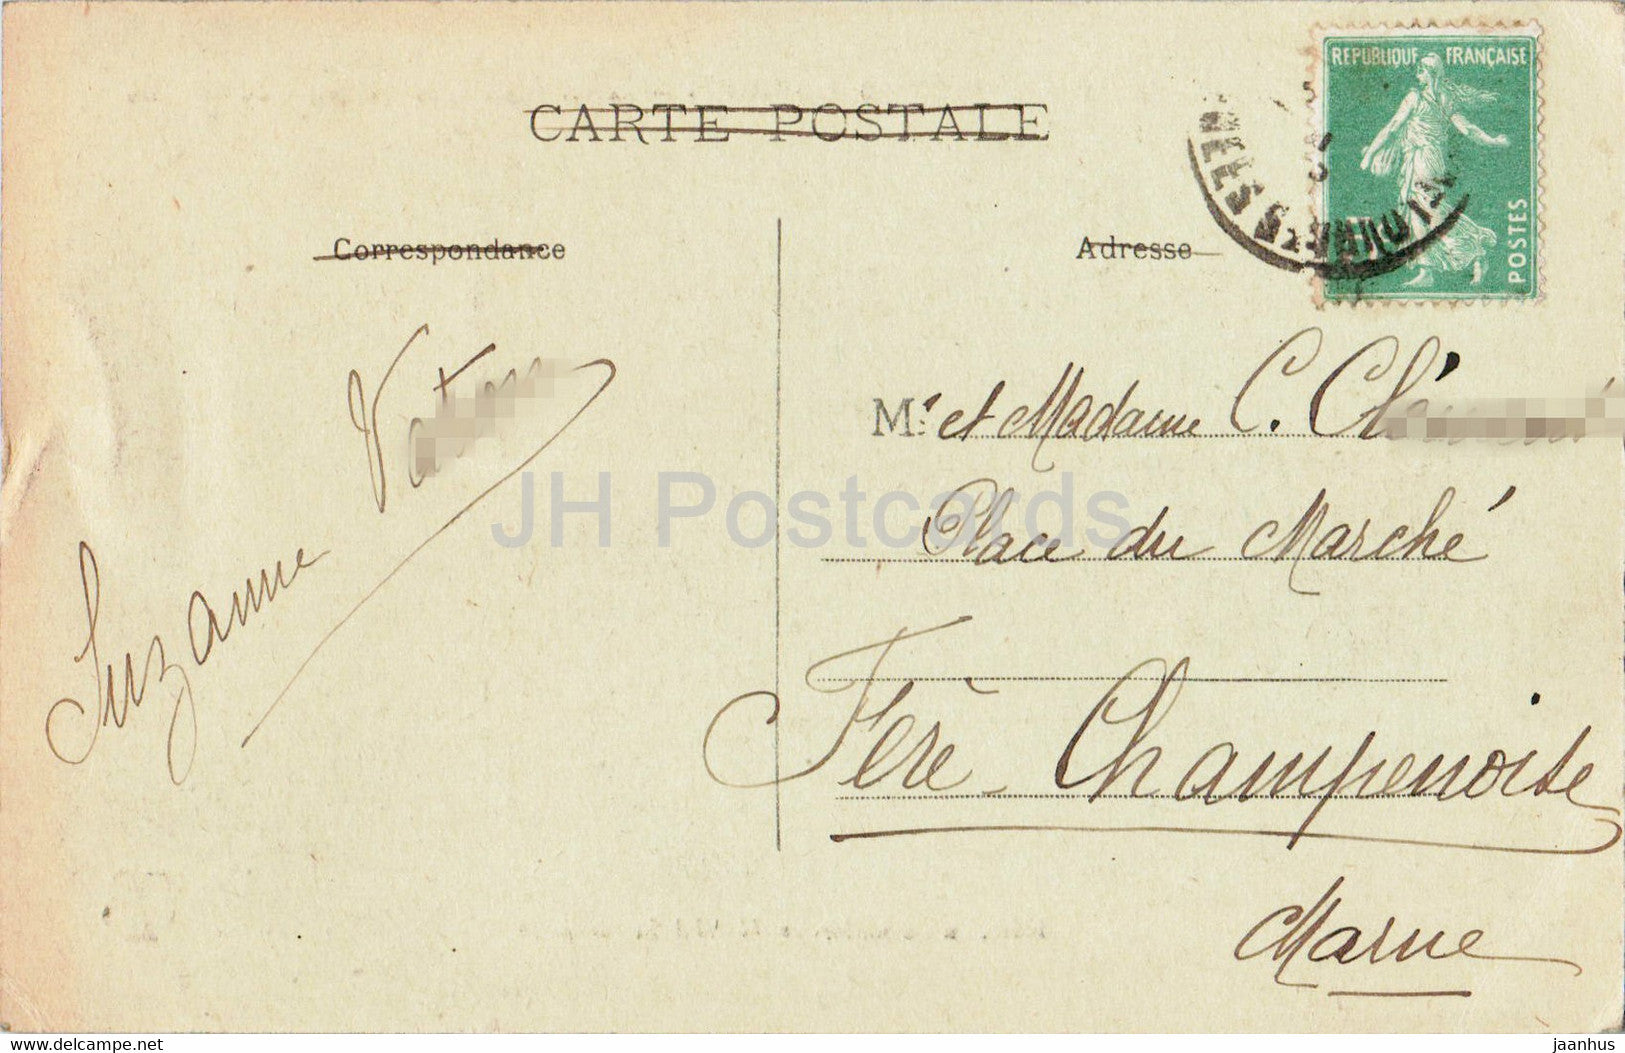 CARTE POSTALE
REPUBLIQUE FRANÇAISE
POSTES
Correspondance
Adresse
Suzanne
Mr et Madame C.
Place du Marché
Fère-Champenoise
Marne
JH Postcards
www.delcampe.net
jaanhus